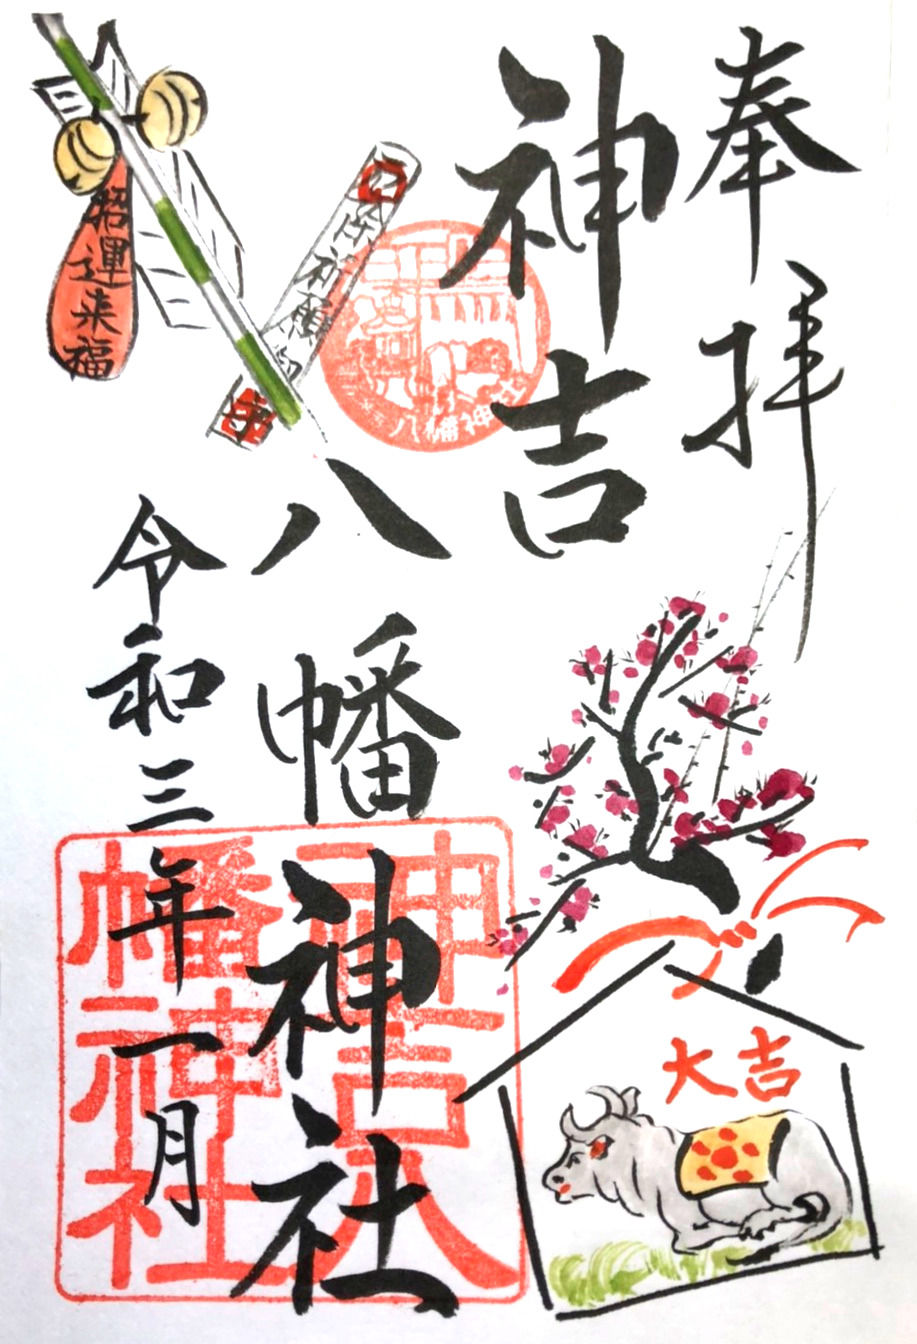 奉拝
神吉
八幡神社
令和三年一月
招運来福
八幡神社
大吉
神吉八
幡神社